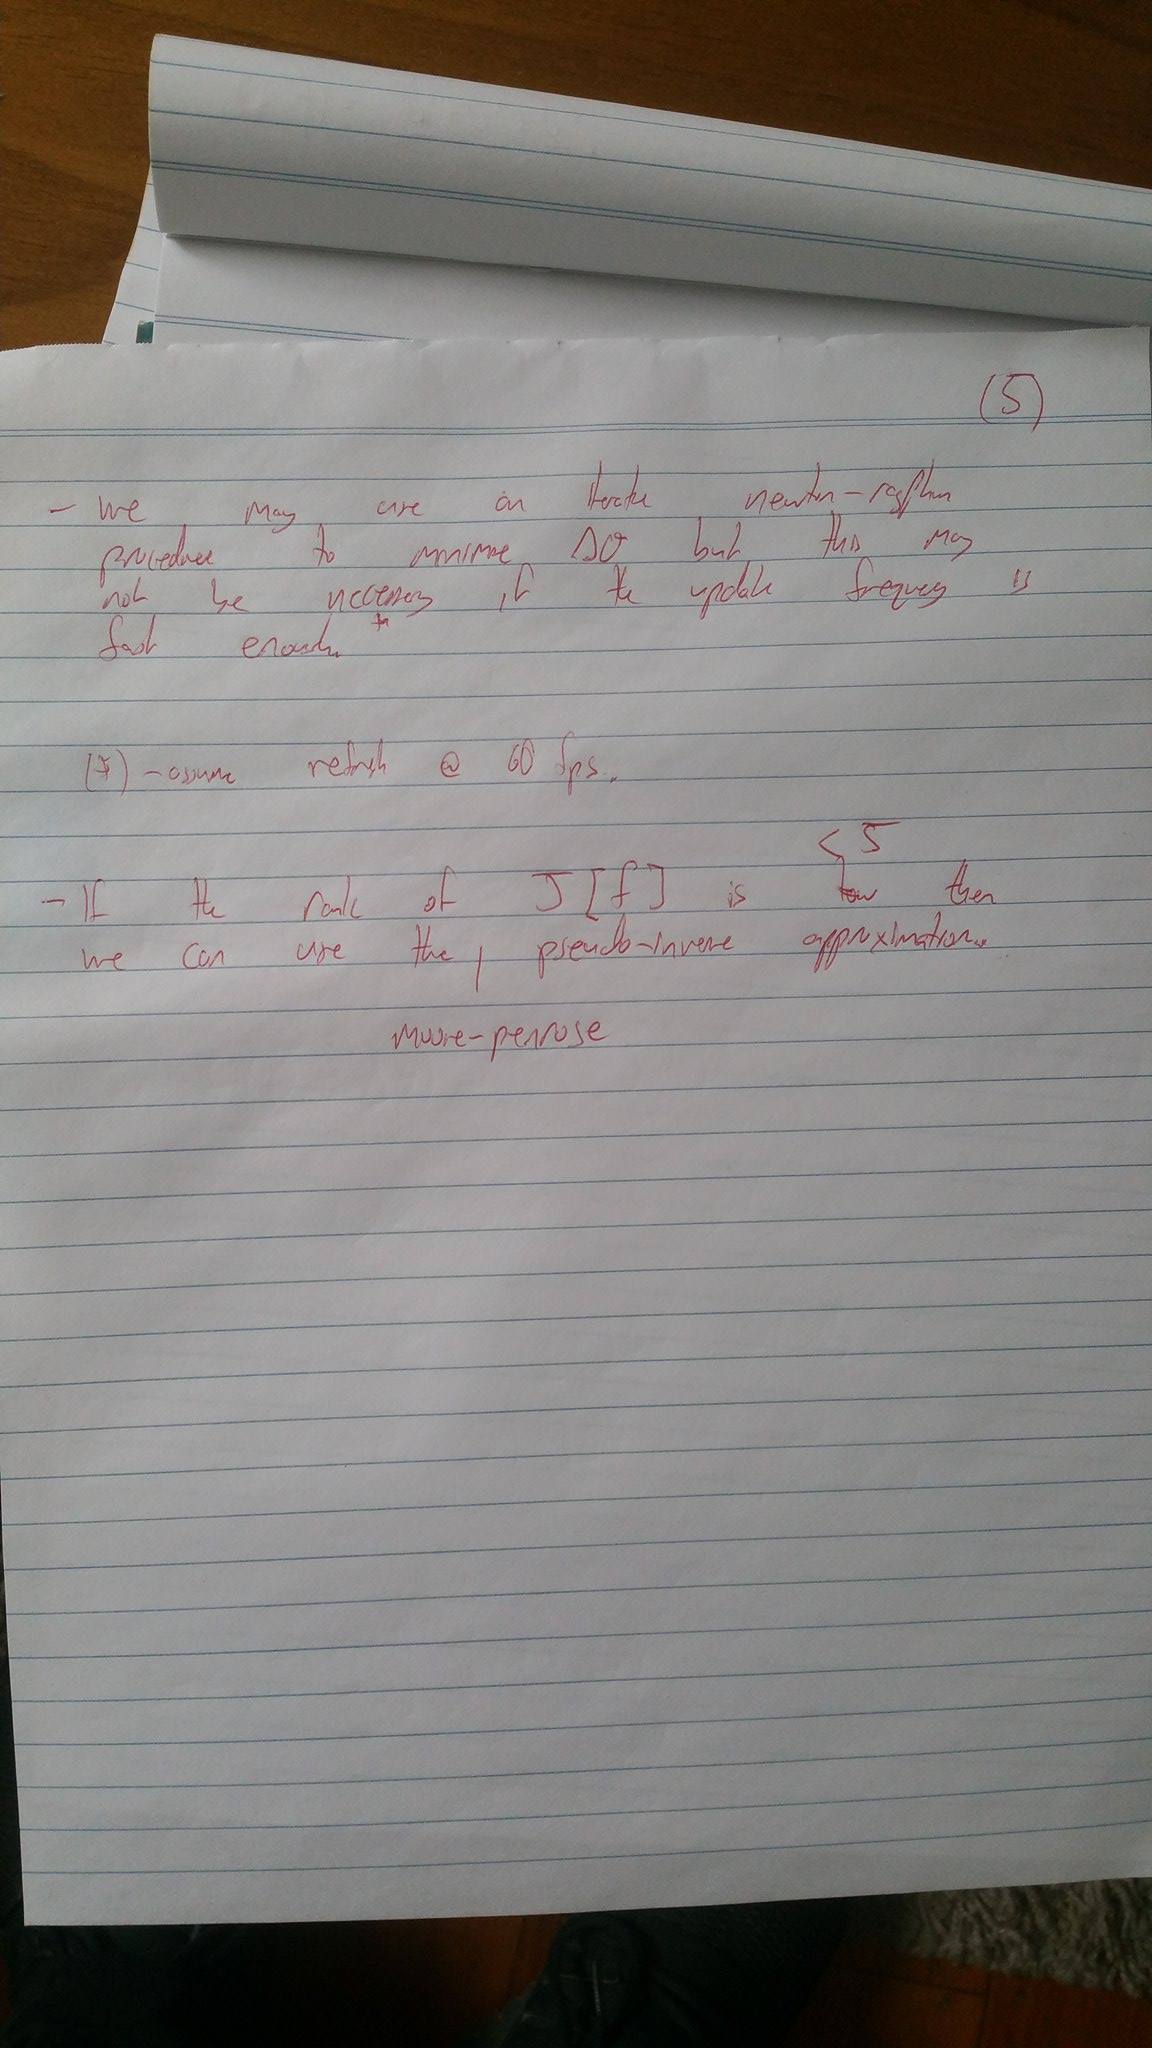 (5)
- we may use an iterate newton-raphson
procedure to minimise Δθ but this may
not be necessary if the update frequency is
fast enough. *
(*) - assume refresh @ 60 fps.
< 5
- If the rank of J[f] is low then
we can use the pseudo-inverse approximation.
moore-penrose